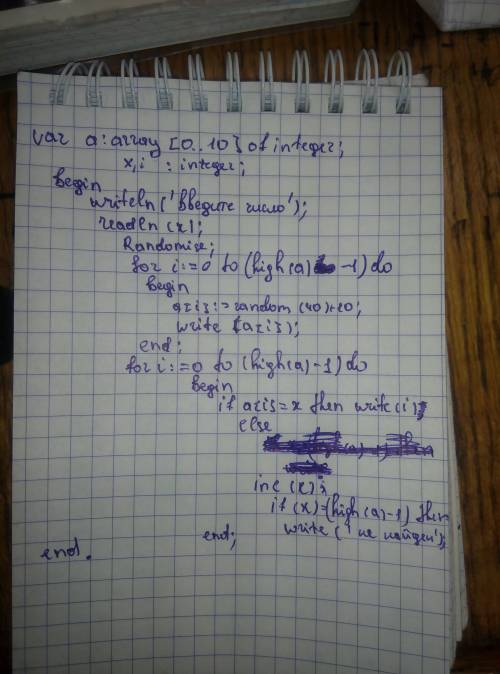 var a: array [0..10] of integer;
x, i : integer;
begin
writeln ('введите число');
readln (x);
Randomise;
for i:=0 to (high(a) -1) do
begin
a[i]:=random (40)+20;
write (a[i]);
end;
for i:=0 to (high(a)-1) do
begin
if a[i]=x then write(i);
else
inc (x);
if (x)=(high(a)-1) then
write (' не найден');
end;
end.